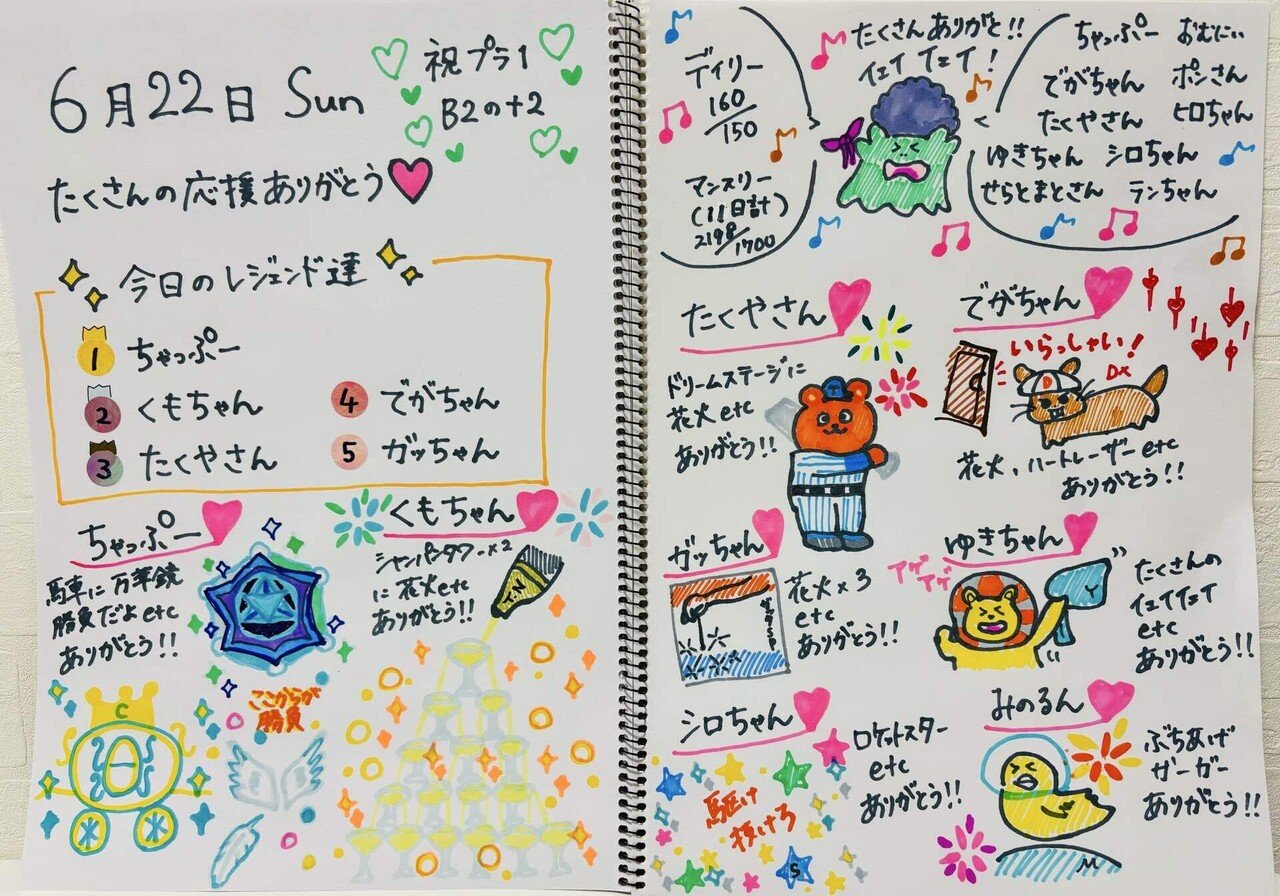 6月22日 Sun
祝プラ1
B2の+2
たくさんの応援ありがとう
今日のレジェンド達
1 ちゃっぷー
2 くもちゃん
3 たくやさん
4 でがちゃん
5 ガッちゃん
ちゃっぷー
馬車に万華鏡
勝負だよetc
ありがとう!!
C
ここからが
勝負
くもちゃん
シャンパンタワー×2
に花火etc
ありがとう!!
デイリー
160
/150
マンスリー
(11日計)
2198
/1700
たくさんありがと!!
イェイ イェイ!
ちゃっぷー おむにい
でがちゃん ポンさん
たくやさん ヒロちゃん
ゆきちゃん シロちゃん
せらとまとさん テンちゃん
たくやさん
ドリームステージに
花火etc
ありがとう!!
T
でがちゃん
いらっしゃい!
D
DX
花火、ハートレーザーetc
ありがとう!!
ガッちゃん
花火×3
etc
ありがとう!!
ゆきちゃん
アゲ
アゲ
Y
たくさんの
イェイイェイ
etc
ありがとう!!
シロちゃん
駆け
抜けろ
S
ロケットスター
etc
ありがとう!!
みのるん
ぶちあげ
ガーガー
ありがとう!!
M